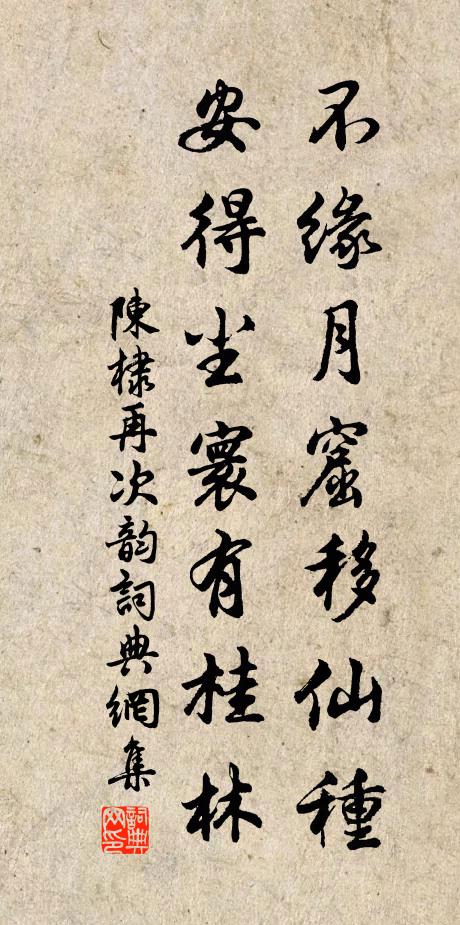 不緣月窟移仙種
安得尘寰有桂林
陳棣再次韵詞典網集
詞典網印